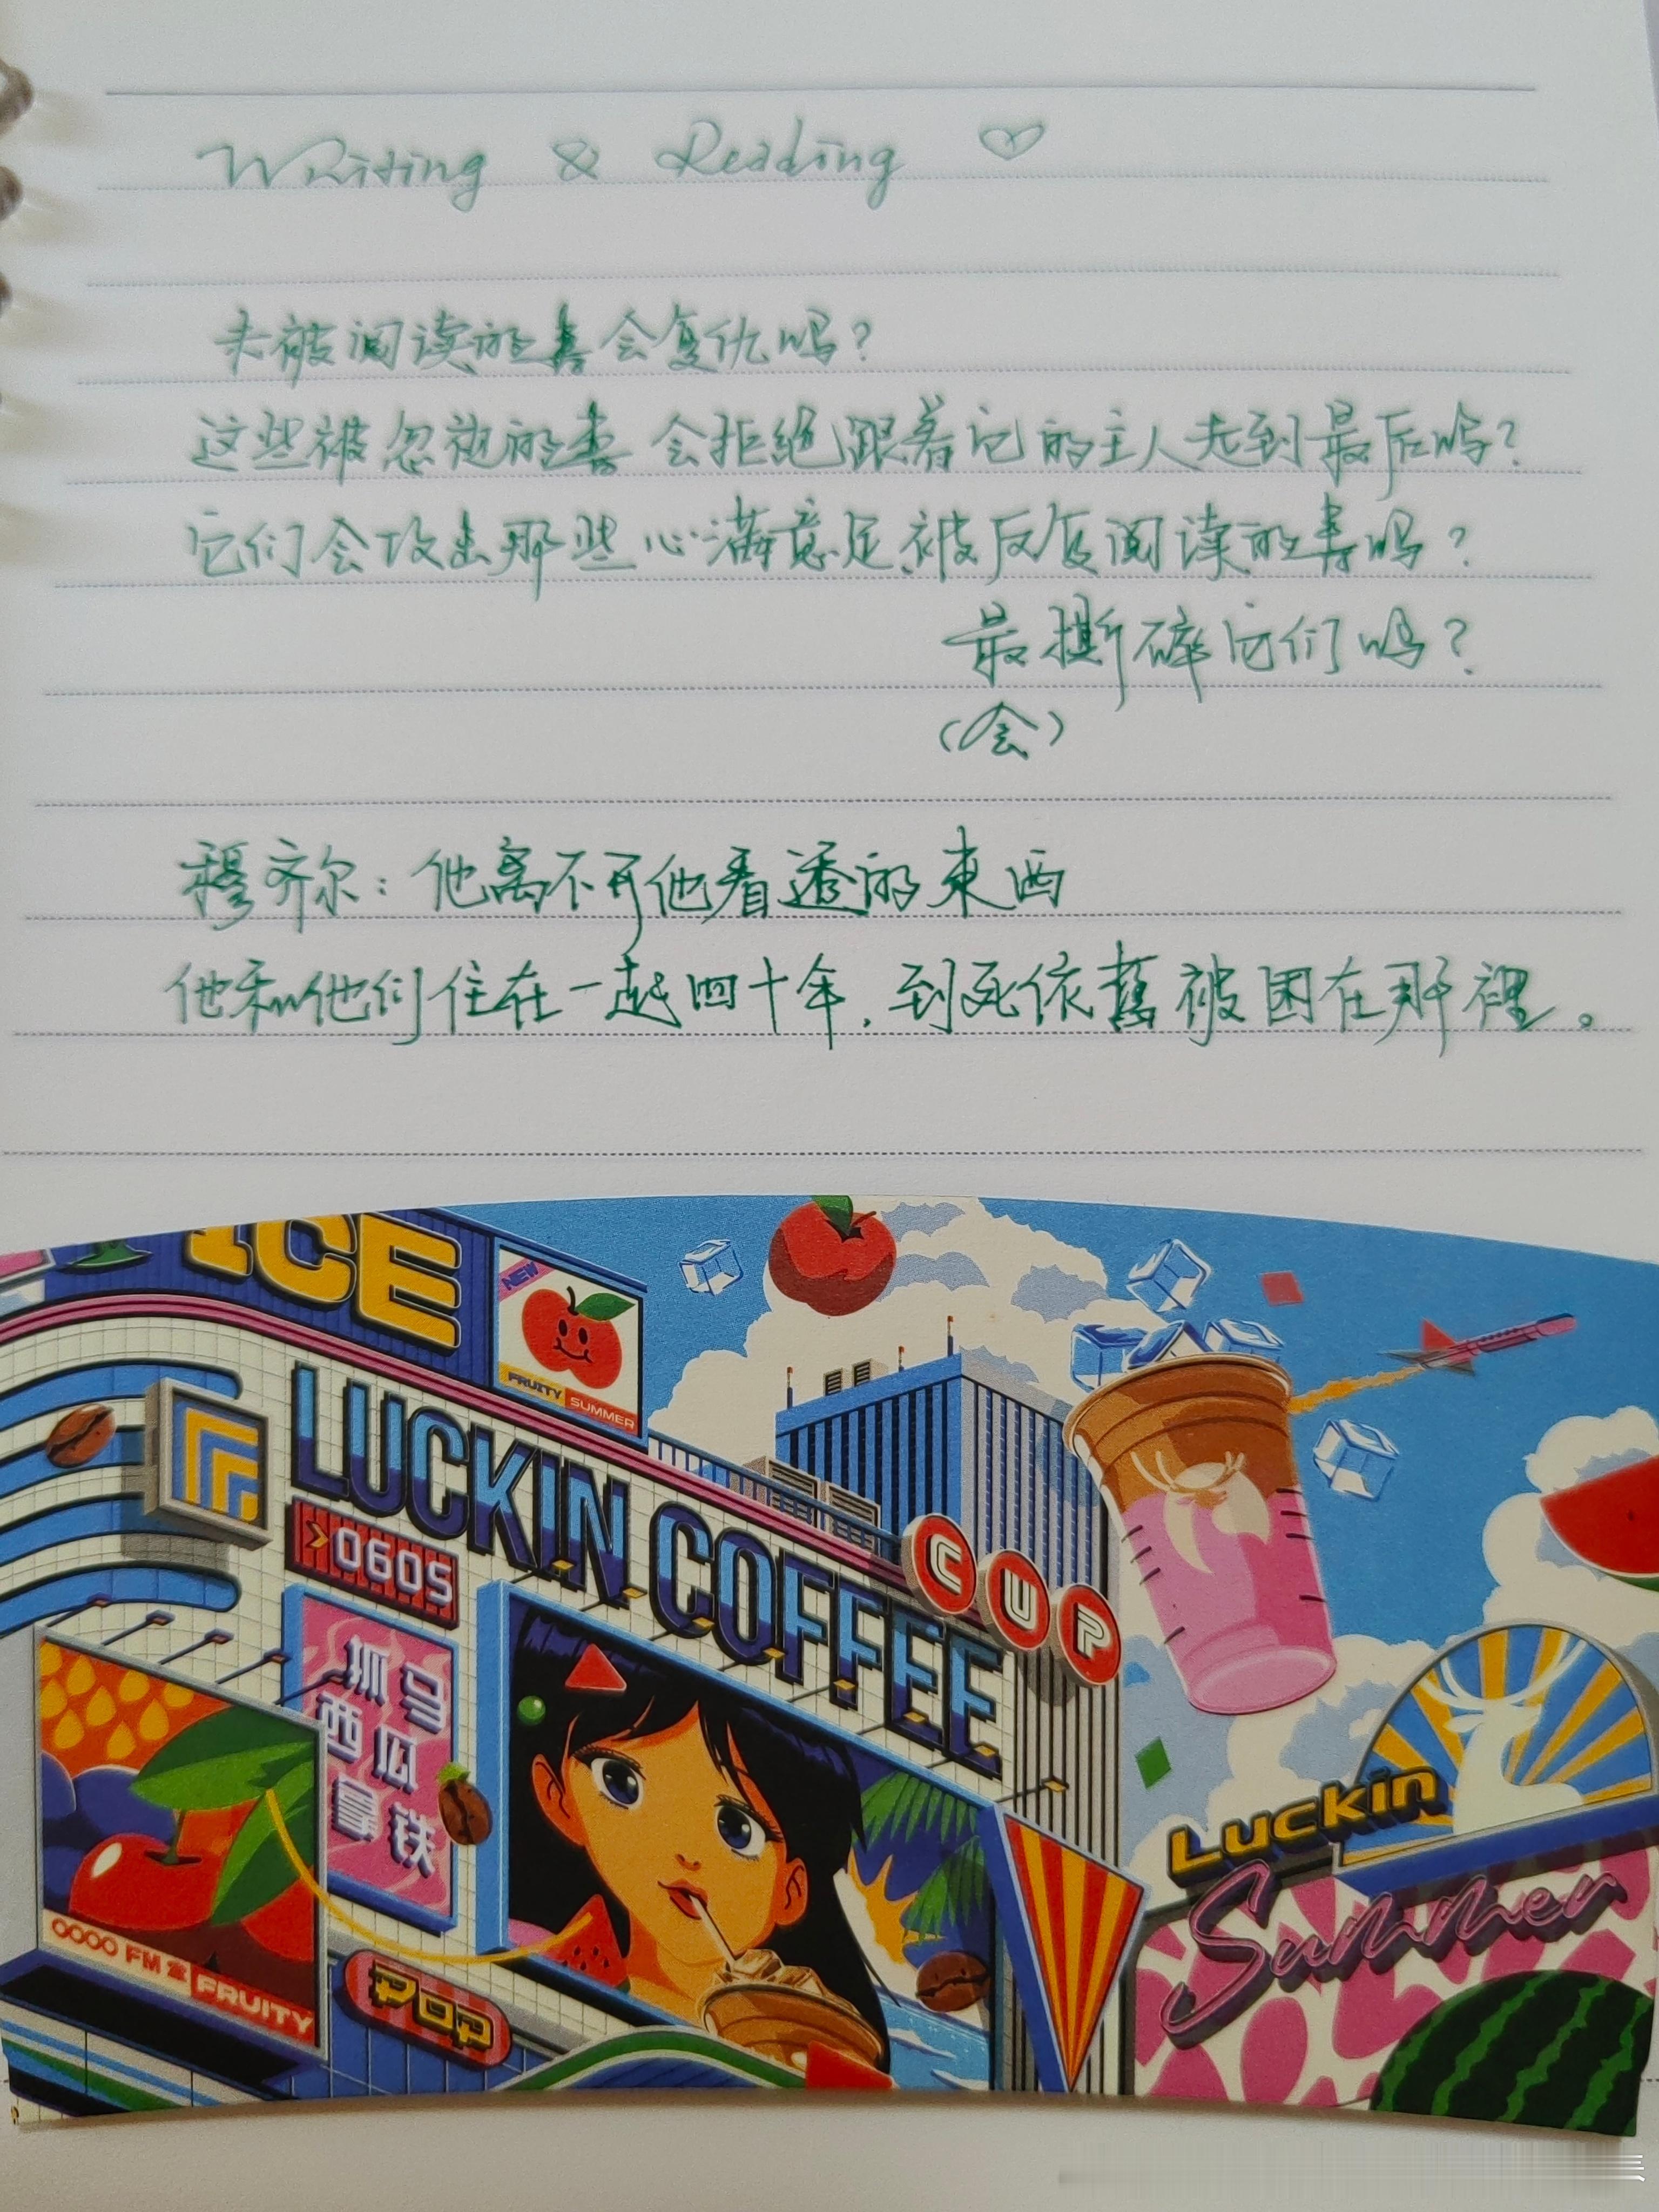 Writing & Reading
未被阅读的書会复仇吗？
这些被忽视的書会拒绝跟着它的主人走到最后吗？
它们会攻击那些心满意足、被反复阅读的書吗？
最撕碎它们吗？
（会）
穆齐尔：他离不开他看透的東西
他和他们住在一起四十年，到死依舊被困在那裡。
ICE
NEW
FRUITY SUMMER
LUCKIN COFFEE
0605
CUP
抓马
西瓜
拿铁
FRUITY
POP
Luckin
Summer